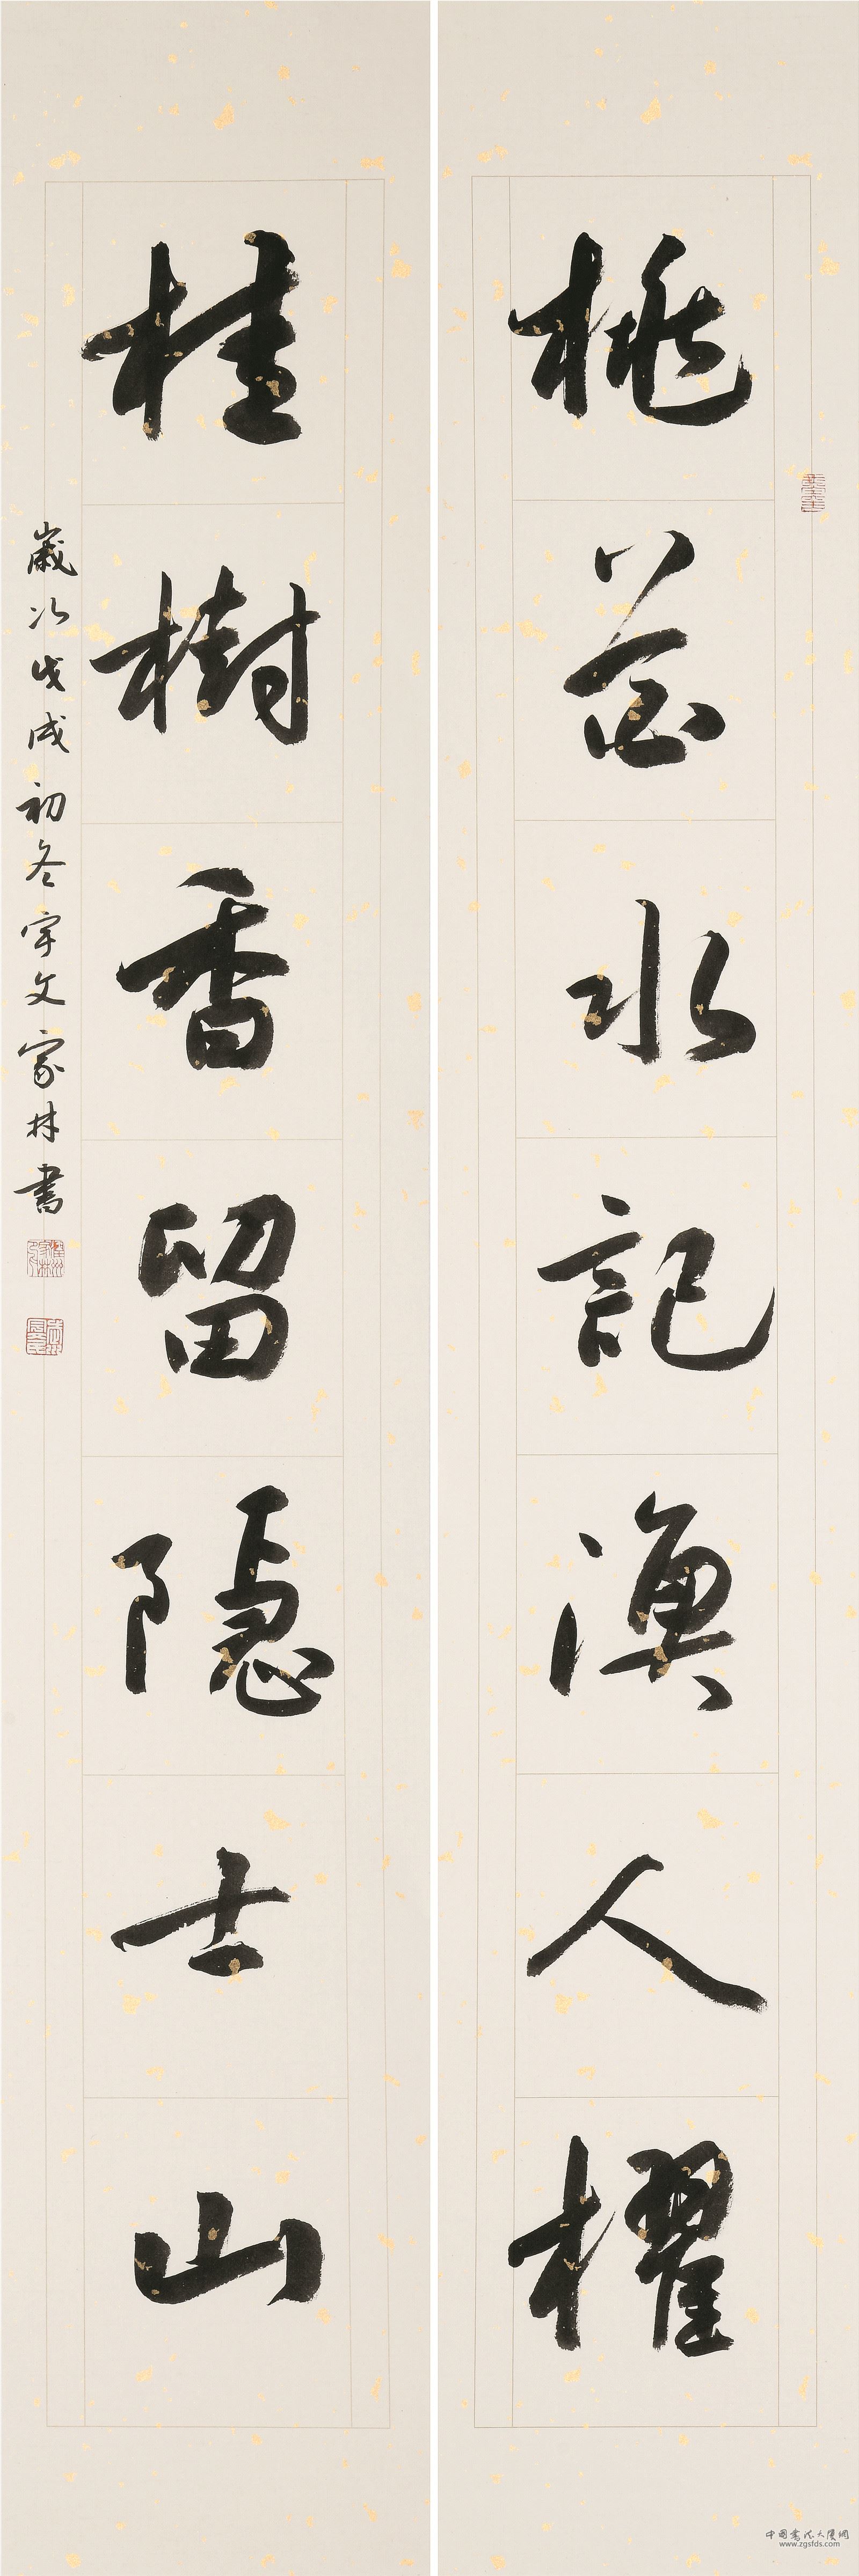 桃花水記漁人櫂
桂樹香留隱士山
歲次戊戌初冬宇文家林書
中国書法大厦網
www.zgsfds.com